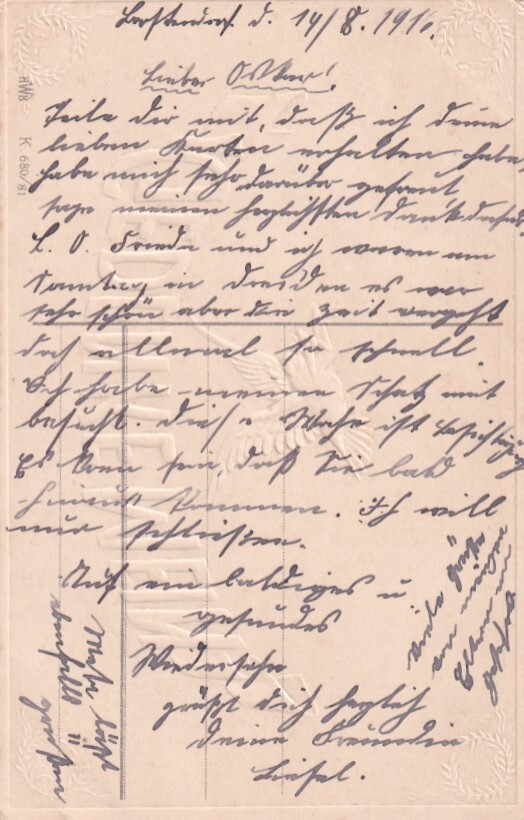 Borstendorf. d. 14/8. 1910.
Lieber Oskar!
Teile dir mit, daß ich deine
lieben Karten erhalten habe,
habe mich sehr darüber gefreut
sage meinen herzlichsten Dank dafür
L. O. Frieda und ich waren am
Sonntag in Dresden es war
sehr schön aber die Zeit vergeht
doch allemal so schnell.
Ich habe meinen Schatz mit
besucht. Diese Woche ist Besichtigung
Es kann sein daß Sie bald
hinaus kommen. Ich will
nun schließen.
Auf ein baldiges u
gesundes
Wiedersehn
grüßt dich herzlich
deine Freundin
Liesel.
Viele Grüße
von meinen
Eltern an
läßt
ebenfalls
grüßen
HWB
K 680/81